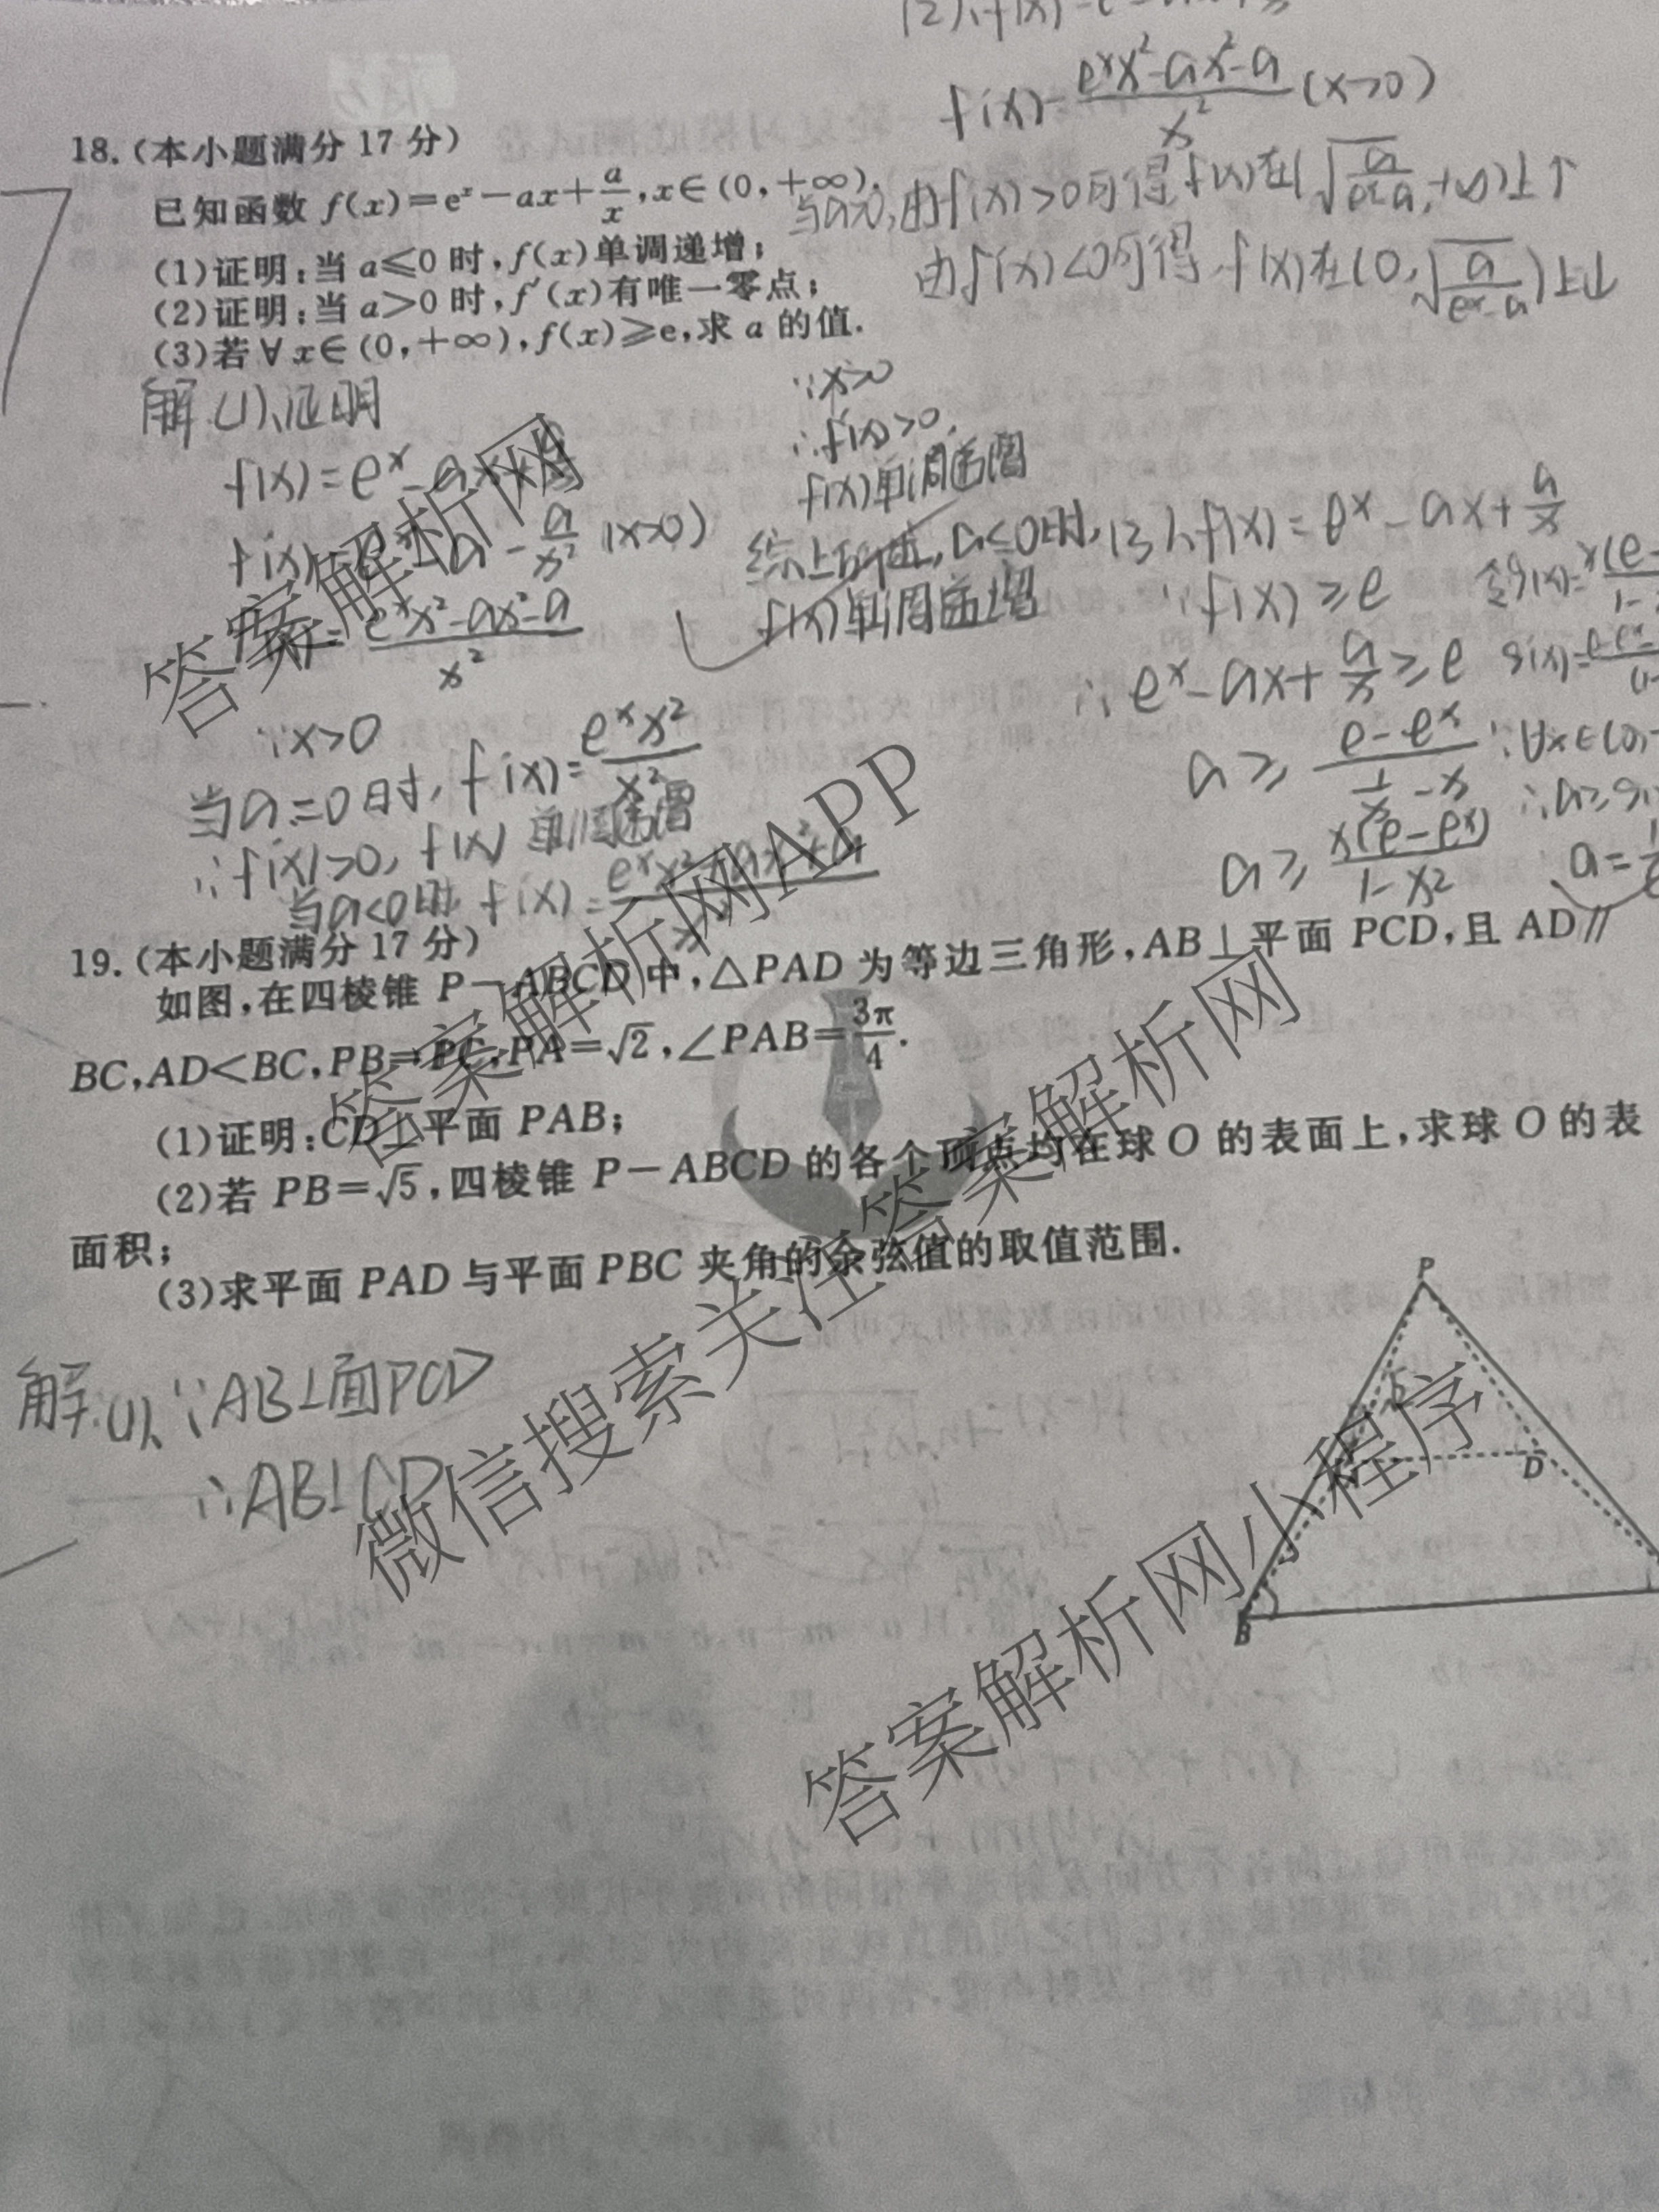 18.(本小题满分 17 分)
已知函数 f(x)=eˣ-ax+a/x,x∈(0,+∞).
(1)证明:当 a≤0 时,f(x)单调递增;
(2)证明:当 a>0 时,f′(x)有唯一零点;
(3)若∀x∈(0,+∞),f(x)≥e,求 a 的值.
f'(x)=(eˣx²-ax²-a)/x² (x>0)
当a>0,由f'(x)>0可得f(x)在(√(a/(eˣ-a)),+∞)上↑
由f'(x)<0可得,f(x)在(0,√(a/(eˣ-a)))上↓
解(1)、证明
f(x)=eˣ-ax+
-a-a/x² (x>0)
=(eˣx²-ax²-a)/x²
∵x>0
当a=0时,f'(x)=eˣx²/x²
∴f'(x)>0,f(x)单调递增
当a<0时,f'(x)=
∵x>0
∴f'(x)>0,
f(x)单调递增
综上所述,a≤0时,
f(x)单调递增
(3)、f(x)=eˣ-ax+a/x
∵f(x)≥e
∴eˣ-ax+a/x≥e
a≥(e-eˣ)/(1/x-x)
a≥x(e-eˣ)/(1-x²)
令g(x)=
∵∀x∈(0,
∴a≥g(
a=
19.(本小题满分 17 分)
如图,在四棱锥 P-ABCD 中,△PAD 为等边三角形,AB⊥平面 PCD,且 AD∥
BC,AD<BC,PB=PC,PA=√2,∠PAB=3π/4.
(1)证明:CD⊥平面 PAB;
(2)若 PB=√5,四棱锥 P-ABCD 的各个顶点均在球 O 的表面上,求球 O 的表
面积;
(3)求平面 PAD 与平面 PBC 夹角的余弦值的取值范围.
解.(1)、∵AB⊥面PCD
∴AB⊥CD
P
D
B
答案解析网
答案解析网APP
微信搜索关注答案解析网
答案解析网小程序